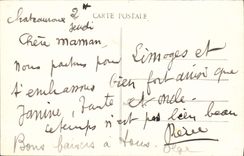 Chateauroux 2h
CARTE POSTALE
Jeudi
Chère maman,
Nous partons pour Limoges et
t'embrassons bien fort ainsi que
Janine, tante et oncle.
Le temps n'est pas bien beau
Bons baisers à tous.
Pierre